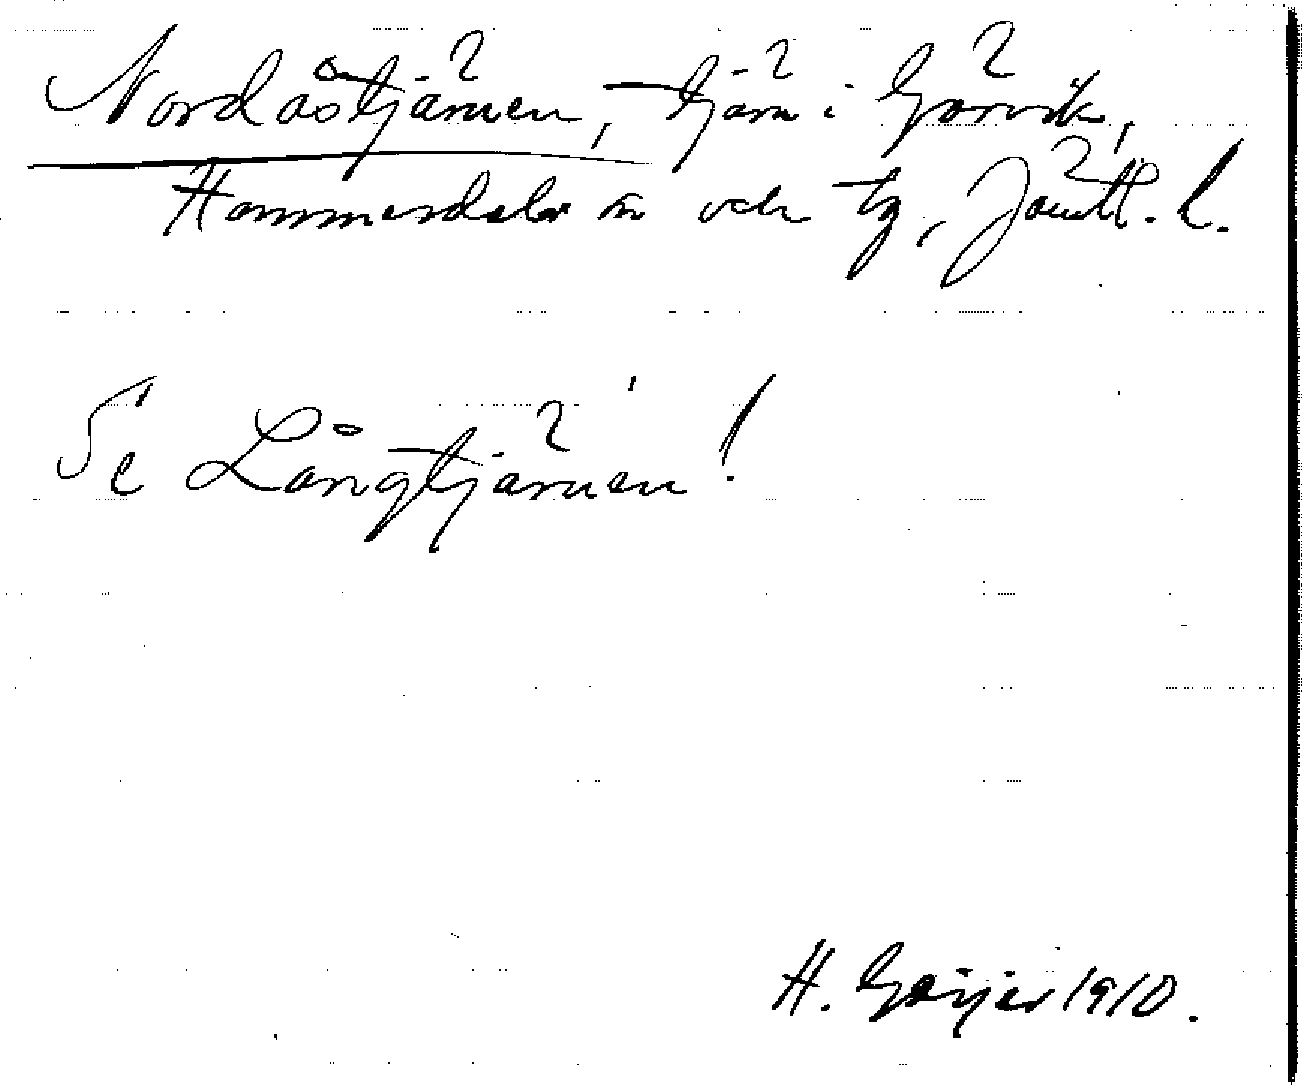 Nordåstjärnen, tjärn i Görvik,
Hammerdals sn och tg, Jämtl. l.
Se Långtjärnen!
H. Geijer 1910.